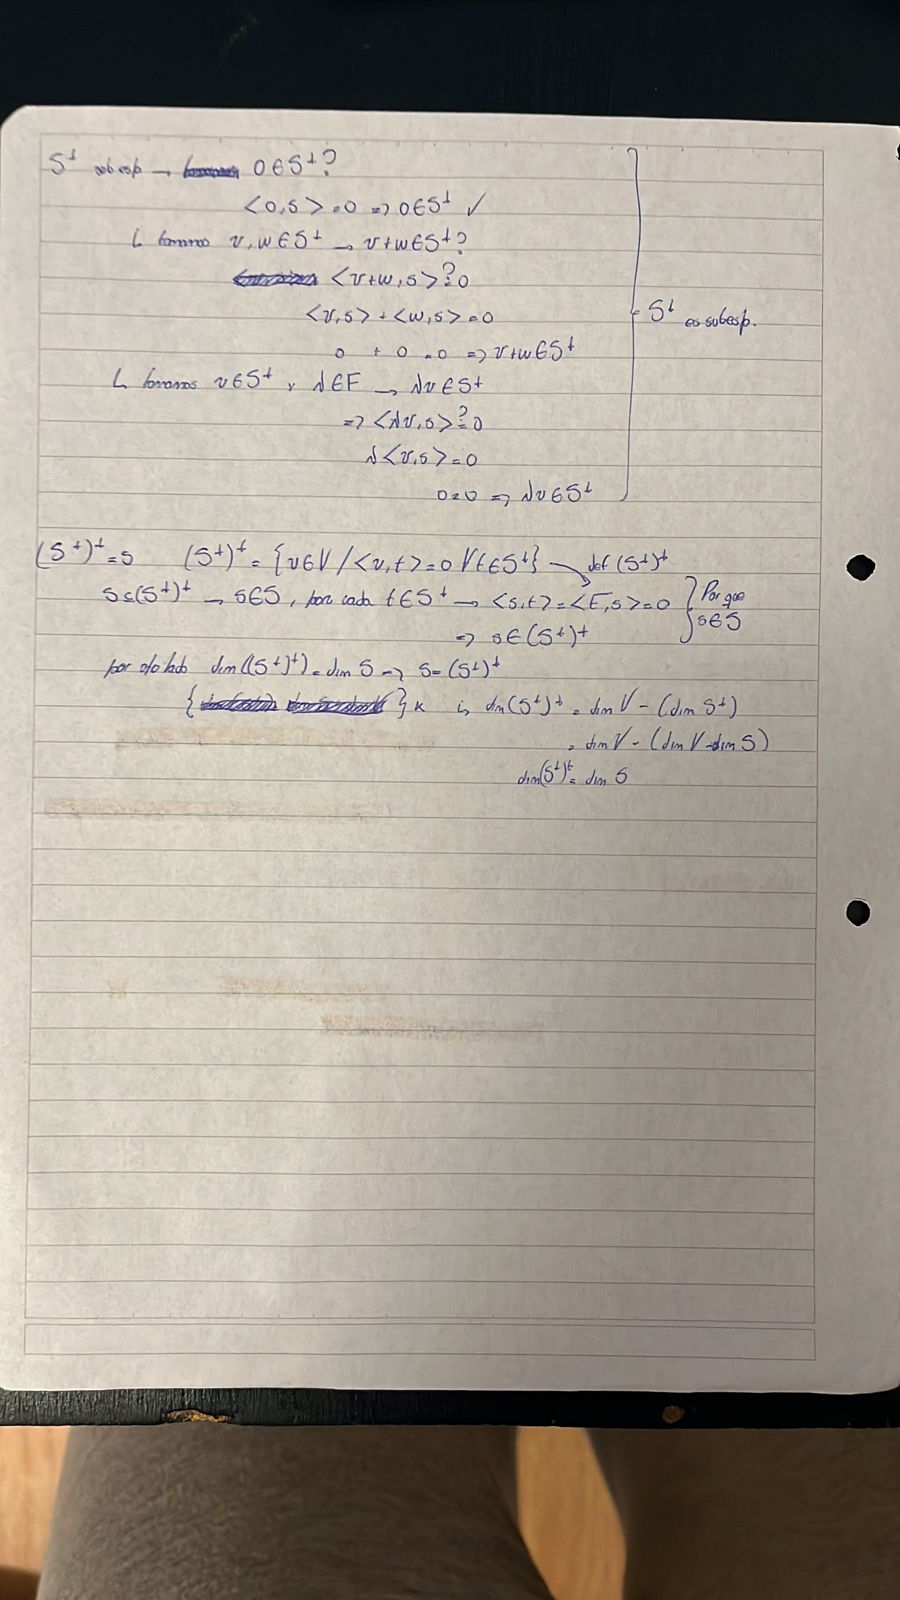 S⊥ subesp → 0∈S⊥?
<0,s> = 0 => 0∈S⊥ ✓
L tomamos v,w∈S⊥ → v+w∈S⊥?
<v+w,s> ?= 0
<v,s> + <w,s> = 0
S⊥ es subesp.
0 + 0 = 0 => v+w∈S⊥
L tomamos v∈S⊥ y λ∈F → λv∈S⊥
=> <λv,s> ?= 0
λ<v,s> = 0
0=0 => λv∈S⊥
(S⊥)⊥ = S (S⊥)⊥ = {v∈V / <v,t> = 0 ∀t∈S⊥} → def (S⊥)⊥
S⊆(S⊥)⊥ → s∈S, por cada t∈S⊥ → <s,t> = <t,s> = 0 } Por que s∈S
=> s∈(S⊥)⊥
por otro lado dim((S⊥)⊥) = dim S => S = (S⊥)⊥
dim(S⊥)⊥ = dim V - (dim S⊥)
= dim V - (dim V - dim S)
dim(S⊥)⊥ = dim S